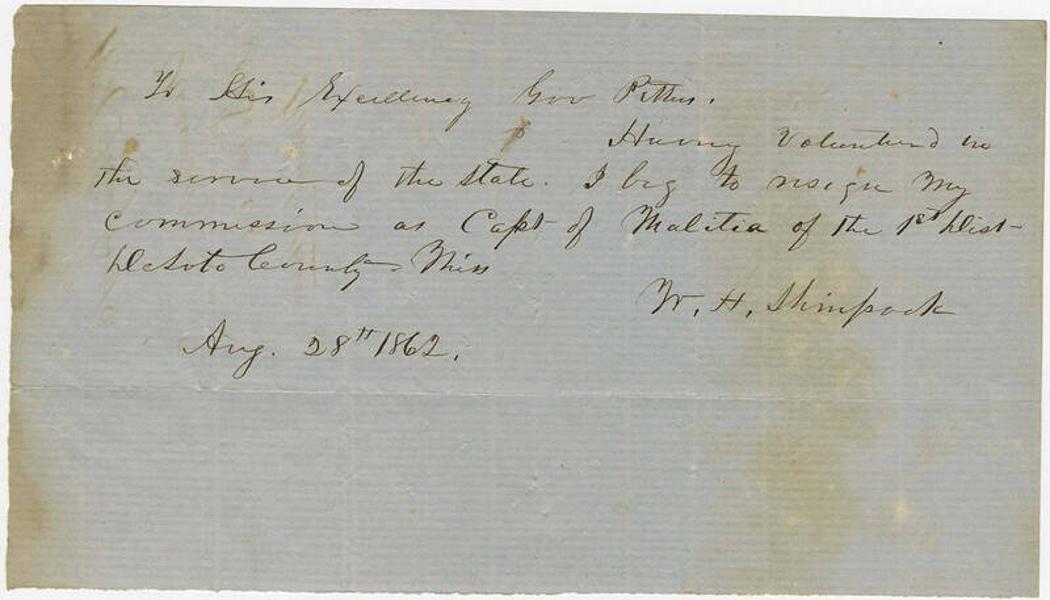 To His Excellency Gov Pettus.
Having Volunteerd in
the service of the state. I beg to resign My
Commission as Capt of Malitia of the 1st Dist-
DeSoto County Miss
W. H. Shinpock
Aug. 28th 1862.